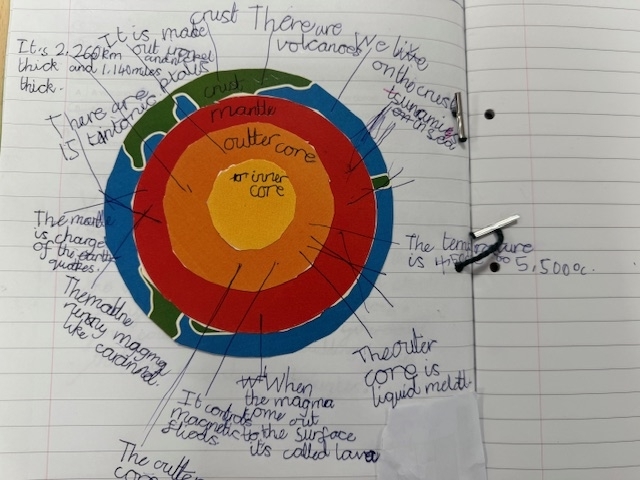 crust
There are
volcanoes
We live
on the crust
tsunamis
It is made
out iron
and nickel
It is 2,260km
thick and 1,140miles
thick.
There are
15 tantonic plats
crust
mantle
outter core
inner
core
The mantle
is charge
of the earth
quakes.
The mantle
runny magma
like
The temprature
is
5,500°c.
The outer
core is
liquid
When
the magma
come out
to the surface
it's called lava
It controls
magnetic
The outter
core